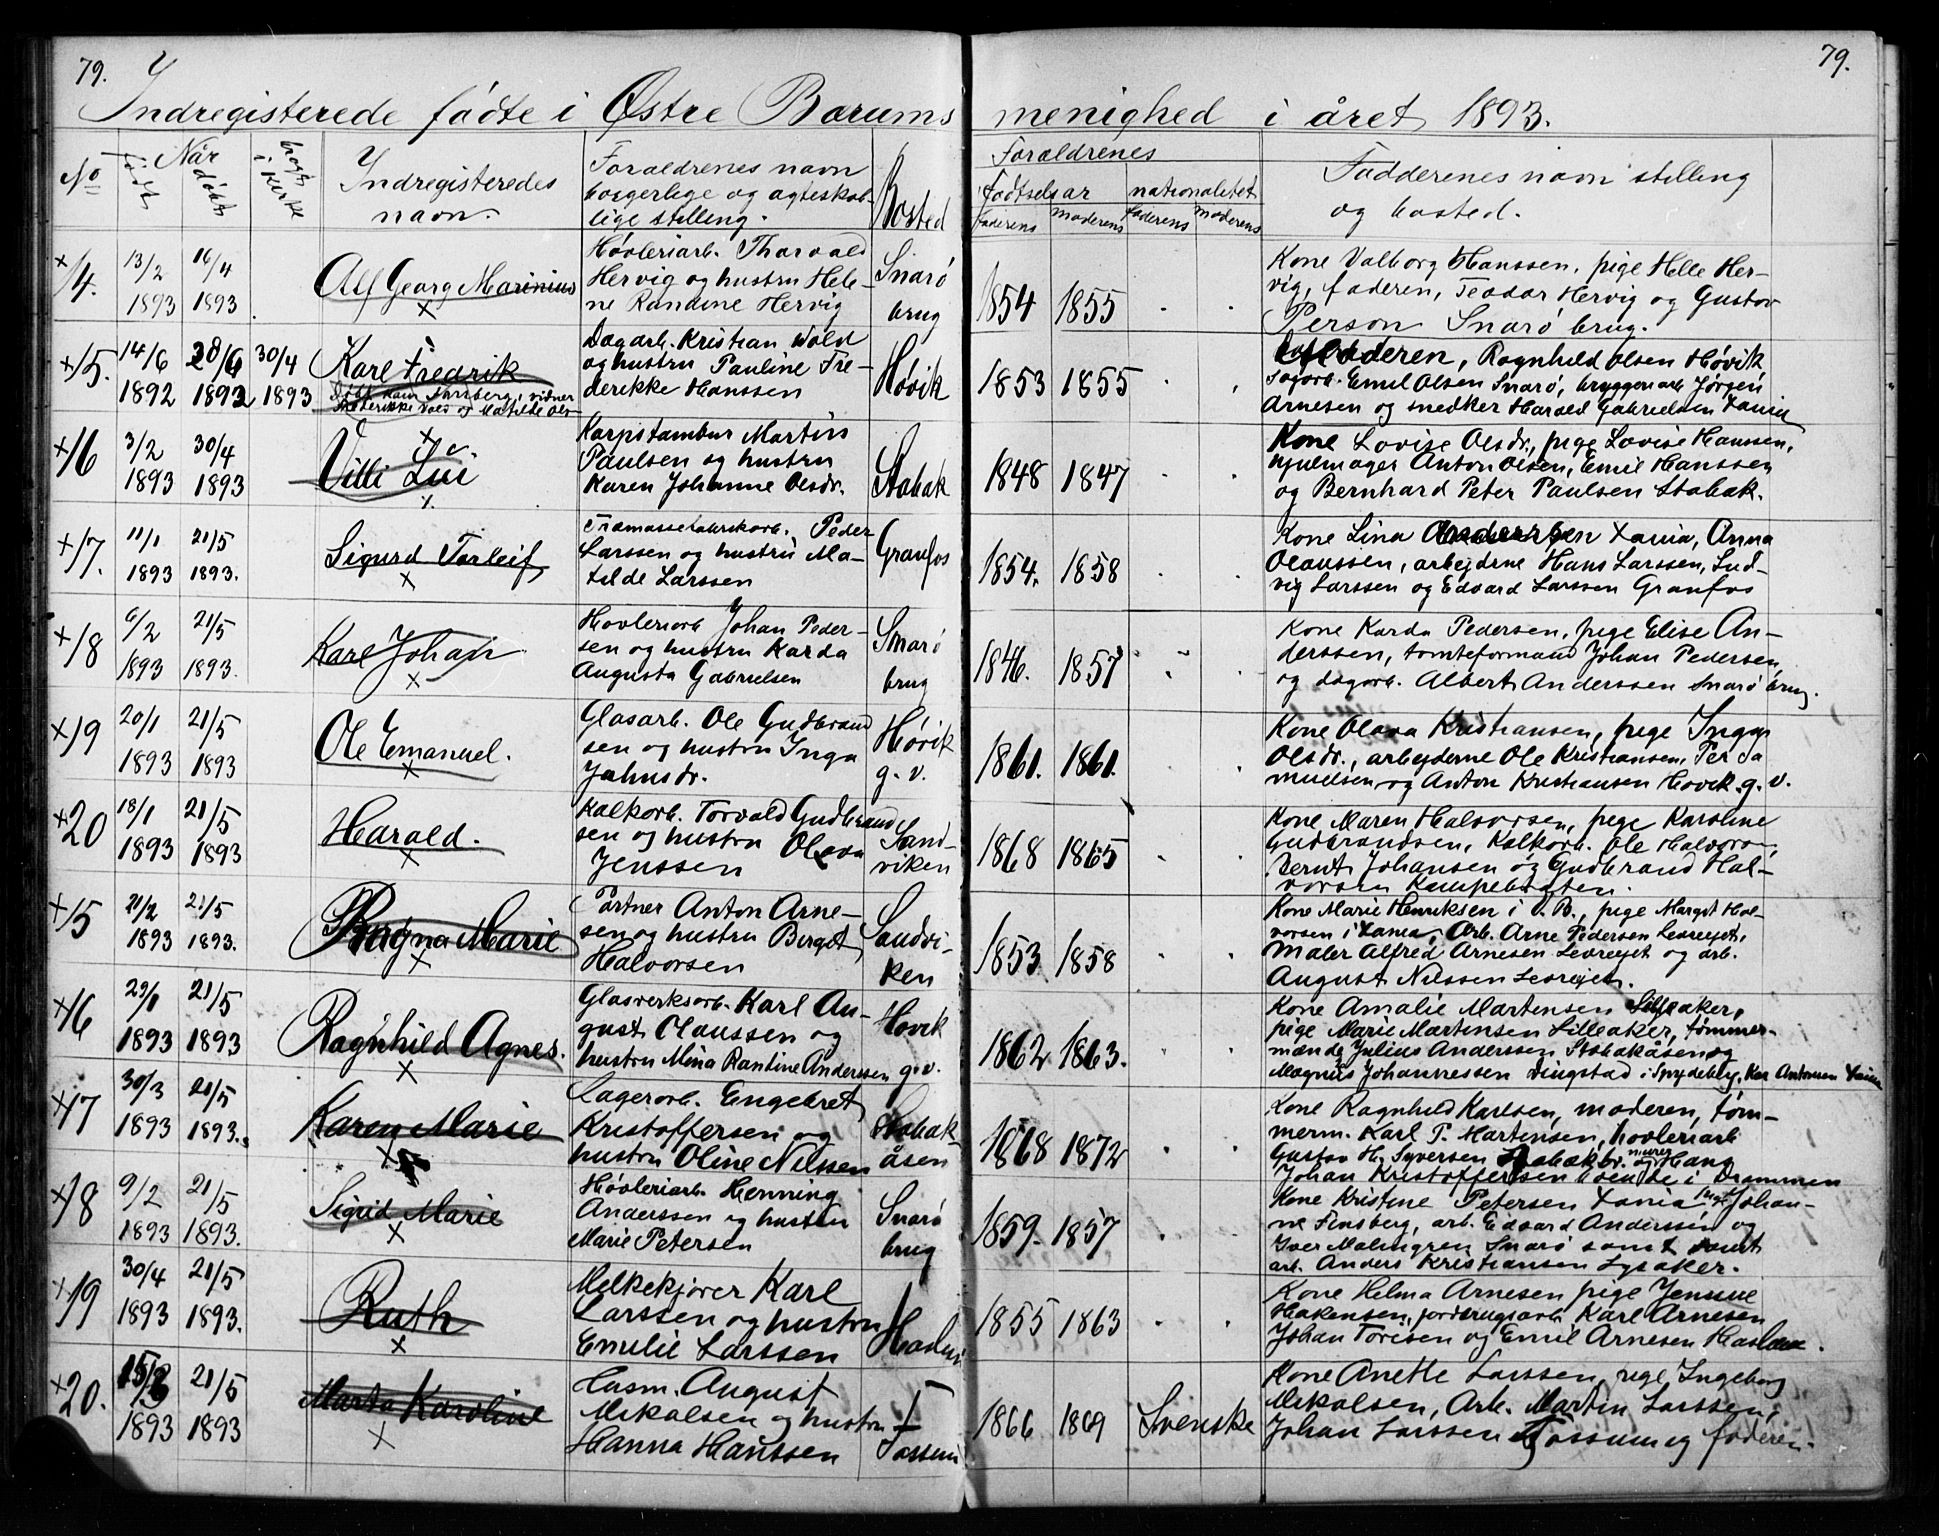 79.
79.
Indregisterede fødte i Østre Bærums menighed i året 1893.
No
Når
født
døbt
bragt i kirke
Indregisteredes
navn.
Forældrenes navn
borgerlige og ægteskab-
lige stilling.
Bosted
Forældrenes
fødselsår
nationalitet
faderens
moderens
faderens
moderens
Faddernes navn stilling
og bosted.
14.
13/2
1893
16/4
1893
Alf Georg Marinius
Høvleriarb. Tharvald
Hervig og hustru Hele-
ne Randine Hervig
Snarø
brug
1854
1855
Kone Valborg Hanssen, pige Helle Her-
vig, faderen, Teodor Hervig og Gustav
Person Snarø brug.
15.
14/6
1892
28/6
1892
30/4
1893
Karl Fredrik
Dagarb. Kristian Wold
og hustru Pauline Fre-
derikke Hanssen
Høvik
1853
1855
Moderen, Ragnhild Olsen Høvik
Sagarb. Emil Olsen Snarø, bryggeriarb Jørgen
Arnesen og snedker Harald Gabrielsen Xania
16
3/2
1893
30/4
1893
Villi Lui
Martin
Paulsen og hustru
Karen Johanne Olsdr.
Stabak
1848
1847
Kone Lovise Olsdr, pige Lovise Hanssen,
hjulmager Anton Olsen, Emil Hanssen
og Bernhard Peter Paulsen Stabak.
17.
11/1
1893
21/5
1893.
Sigurd Torleif
Træmassefabrikarb. Peder
Larssen og hustru Ma-
tilde Larssen
Granfos
1854.
1858
Kone Lina Xania, Anna
Olaussen, arbejderne Hans Larssen, Lud-
vig Larssen og Edvard Larssen Granfos
18
6/2
1893
21/5
1893.
Karl Johan
Høvleriarb Johan Peder-
sen og hustru Karda
Augusta Gabrielsen
Snarø
brug
1846.
1857
Kone Karda Pedersen, pige Elise An-
derssen, tomteformand Johan Pedersen
og dagarb. Albert Anderssen Snarø brug.
19
20/1
1893
21/5
1893
Ole Emanuel.
Glasarb. Ole Gudbrand
sen og hustru Inga
Jahnsdr.
Høvik
g. v.
1861.
1861.
Kone Olava Kristiansen, pige Inga
Olsdr., arbejderne Ole Kristiansen, Per Sa
muelsen og Anton Kristiansen Høvik g. v.
20
18/1
1893
21/5
1893
Harald.
Kalkarb. Torvald Gudbrand
sen og hustru Olava
Jenssen
Sand-
viken
1868
1865
Kone Maren Halvorsen, pige Karoline
Gudbrandsen, Kalkarb. Ole Halvorsen,
Bernt Johansen og Gudbrand Hal-
vorsen
15
21/2
1893
21/5
1893.
Ragna Marie
Portner Anton Arne-
sen og hustru Bergot
Halvorsen
Sandvi-
ken
1853
1858
Kone Marie Henriksen i V. B., pige Margit Hal-
vorsen i Xania, Arb. Arne Pedersen Levrejet,
Maler Alfred Arnesen Levrejet og arb.
August Nilssen Levrejet.
16
29/1
1893
21/5
1893
Ragnhild Agnes.
Glasverksarb. Karl Au-
gust Olaussen og
hustru Mina Rantine Anderssen
Høvik
g. v.
1862
1863.
Kone Amalie Martensen Lilleaker,
pige Marie Martensen Lilleaker, tømmer-
mænd Julius Anderssen Stabakåsen og
Magnus Johannessen Ringstad i Spydeberg, Kar Antonsen Xania
17
30/3
1893
21/5
1893.
Karen Marie
Lagerarb. Engebret
Kristoffersen og
hustru Oline Nilssen
Stabak-
åsen
1868
1872
Kone Ragnhild Karlsen, moderen, tøm-
merm. Karl P. Martensen, høvleriarb
Gustav H. Syversen
Johan Kristoffersen boende i Drammen
18
9/2
1893
21/5
1893.
Sigrid Marie
Høvleriarb. Henning
Anderssen og hustru
Marie Petersen
Snarø
brug
1859.
1857
Kone Kristine Petersen Xania pige Johan-
ne Finsberg, arb. Edvard Anderssen og
Iver Malmgren Snarø samt
arb. Anders Kristiansen Lysaker.
19
30/4
1893
21/5
1893.
Ruth
Melkekjører Karl
Larssen og hustru
Emelie Larssen
Haslum
1855
1863
Kone Helma Arnesen pige Jenssine
Hakensen, jordbrugsarb. Karl Arnesen
Johan Toresen og Emil Arnesen Haslum.
20.
1893
21/5
1893
Marta Karoline
Husm. August
Mikalsen og hustru
Hanna Hanssen
Fossum
1866
1869
Svenske
Kone Anette Larssen, pige Ingeborg
Mikalsen, Arb. Martin Larssen,
Johan Larssen Fossum og faderen.